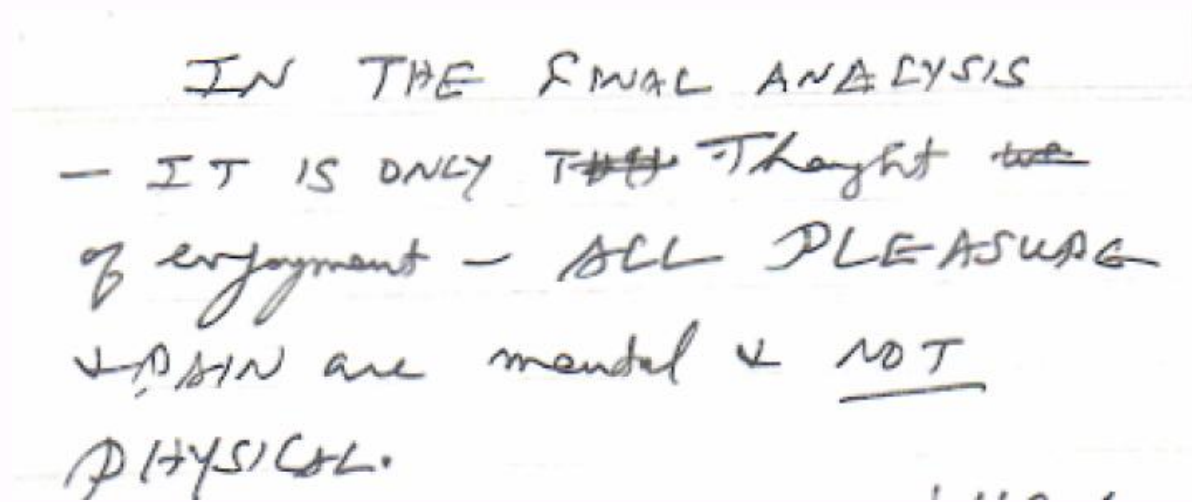 IN THE FINAL ANALYSIS
— IT IS ONLY Thought
of enjoyment — ALL PLEASURE
& PAIN are mental & NOT
PHYSICAL.